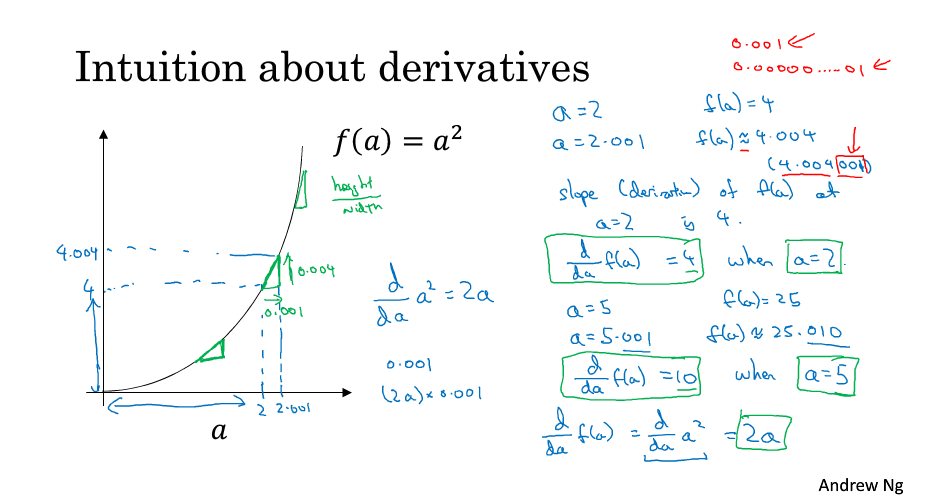 Intuition about derivatives
0.001
0.00000.....01
f(a) = a²
height
width
4.004
4
0.004
0.001
2
2.001
a
d/da a² = 2a
0.001
(2a) × 0.001
a = 2    f(a) = 4
a = 2.001    f(a) ≈ 4.004
(4.004001)
slope (derivative) of f(a) at
a = 2 is 4.
d/da f(a) = 4 when a = 2.
a = 5    f(a) = 25
a = 5.001    f(a) ≈ 25.010
d/da f(a) = 10 when a = 5
d/da f(a) = d/da a² = 2a
Andrew Ng